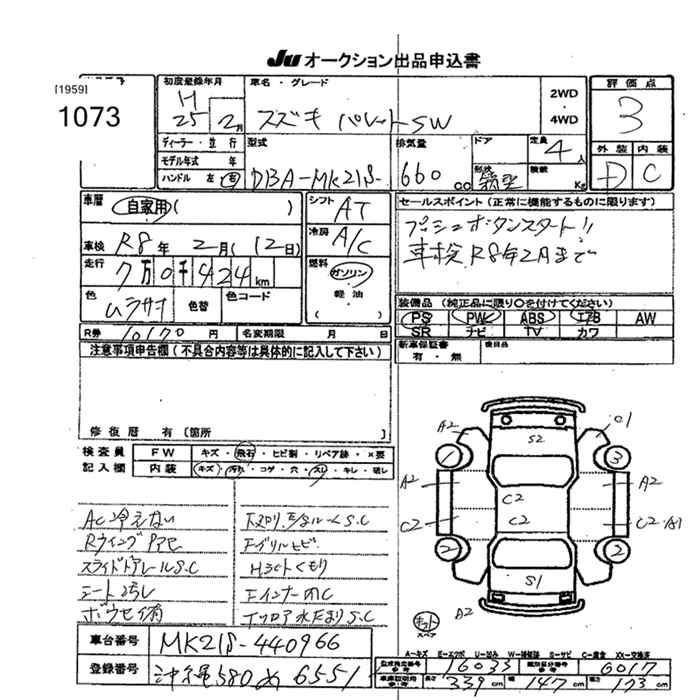 JU オークション出品申込書
[1959]
1073
初度登録年月
H
25 2月
車名・グレード
スズキ パレットSW
2WD
・
4WD
評価点
3
外装 内装
D C
ディーラー・並行
モデル年式 年
ハンドル 左 右
型式
DBA-MK21S-
排気量
660 cc
ドア
形状
定員
4人
積載
Kg
車歴
自家用( )
シフト
AT
セールスポイント(正常に機能するものに限ります)
プッシュボタンスタート!!
車検R8年2月まで
車検 R8年 2月(12日)
冷房
A/C
走行
7万0千424km
燃料
ガソリン
軽油
( )
色
ムラサキ
色替
色コード
装備品(純正品に限り○を付けてください)
PS PW ABS エアB AW
SR ナビ TV カワ
R券 10170 円
名変期限 月 日
新車保証書
有・無
後日品
注意事項申告欄(不具合内容等は具体的に記入して下さい)
修復歴 有〔箇所 〕
検査員
記入欄
FW キズ・飛石・ヒビ割・リペア跡・×要
内装 キズ・汚れ・コゲ・穴・スレ・キレ・破レ
AC冷えない
Rウイングアセ
スライドドアレールS.C
シート汚レ
Fグリルヒビ
H3ctくもり
A2 01
S2
1 3
A2 A2
C2
C2 C2 C2・A1
2 2
S1
A2
スペア
車台番号 MK21S-440966
登録番号 沖縄580め6551
A−キズ E−エクボ U−凹み W−補修跡 S−サビ C−腐食 XX−交換済
型式指定番号 16033 類別区分番号 6017
長さ 339cm 幅 147cm 高さ 173cm